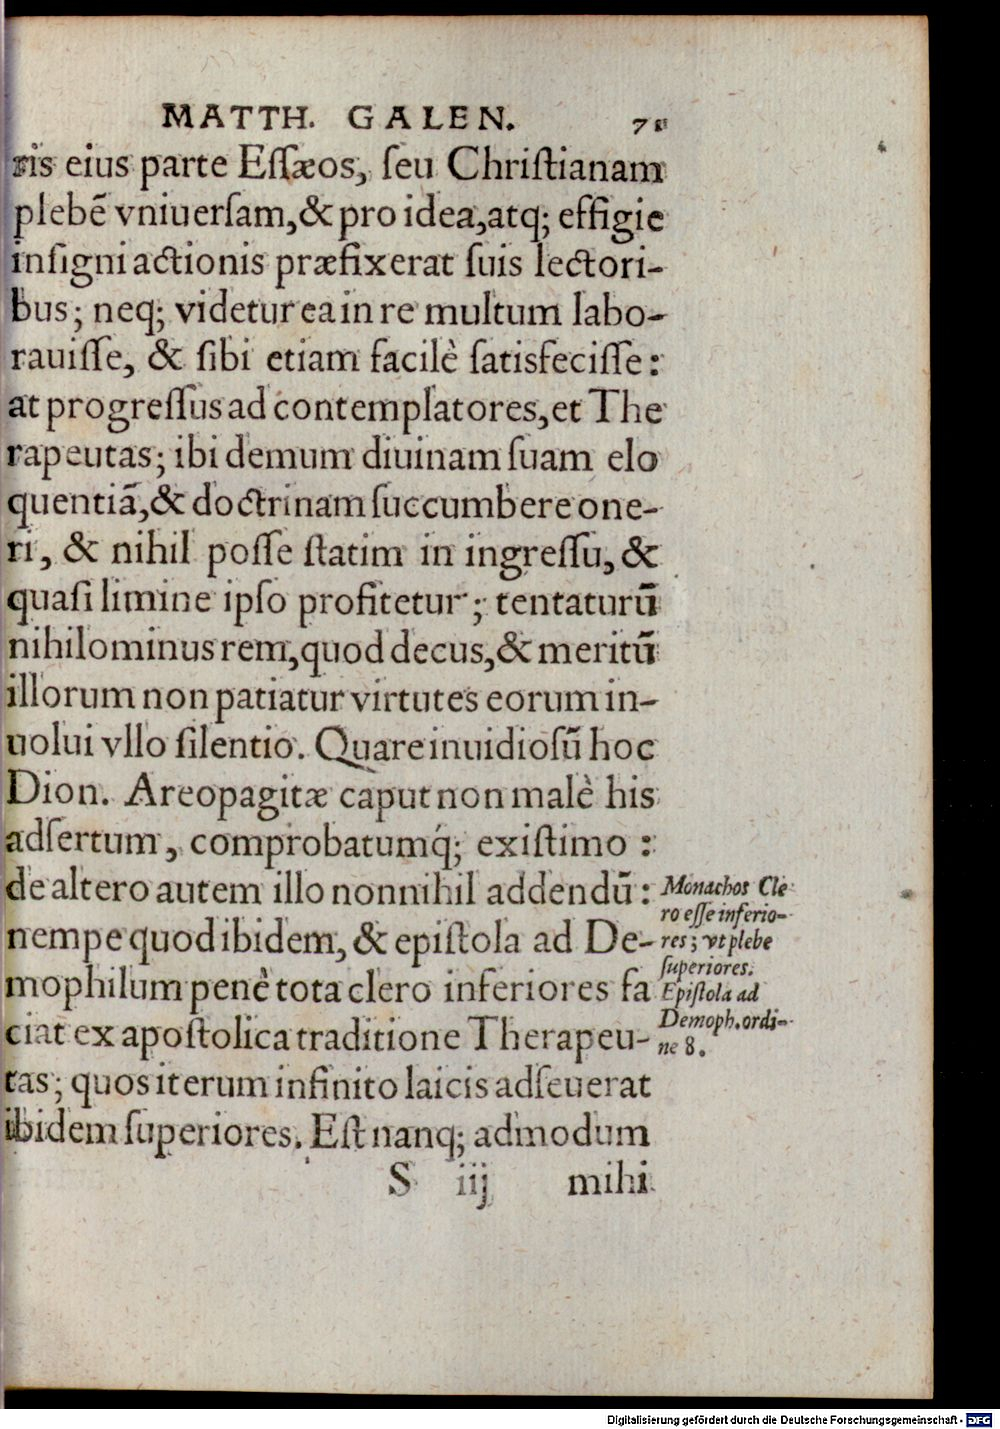 MATTH. GALEN. 71
ris eius parte Eſſæos, ſeu Chriſtianam
plebẽ vniuerſam, & pro idea, atq; effigie
inſigni actionis præfixerat ſuis lectori-
bus; neq; videtur ea in re multum labo-
rauiſſe, & ſibi etiam facilè ſatisfeciſſe:
at progreſſus ad contemplatores, et The
rapeutas; ibi demum diuinam ſuam elo
quentiã, & doctrinam ſuccumbere one-
ri, & nihil poſſe ſtatim in ingreſſu, &
quaſi limine ipſo profitetur; tentaturũ
nihilominus rem, quod decus, & meritũ
illorum non patiatur virtutes eorum in-
uolui vllo ſilentio. Quare inuidioſũ hoc
Dion. Areopagitæ caput non malè his
adſertum, comprobatumq́; exiſtimo :
de altero autem illo nonnihil addendũ :
nempe quod ibidem, & epiſtola ad De-
mophilum penè tota clero inferiores fa
ciat ex apoſtolica traditione Therapeu-
tas; quos iterum infinito laicis adſeuerat
ibidem ſuperiores. Eſt nanq; admodum
S iij mihi
Monachos Cle
ro eſſe inferio-
res; vt plebe
ſuperiores.
Epiſtola ad
Demoph. ordi-
ne 8.
Digitalisierung gefördert durch die Deutsche Forschungsgemeinschaft - DFG